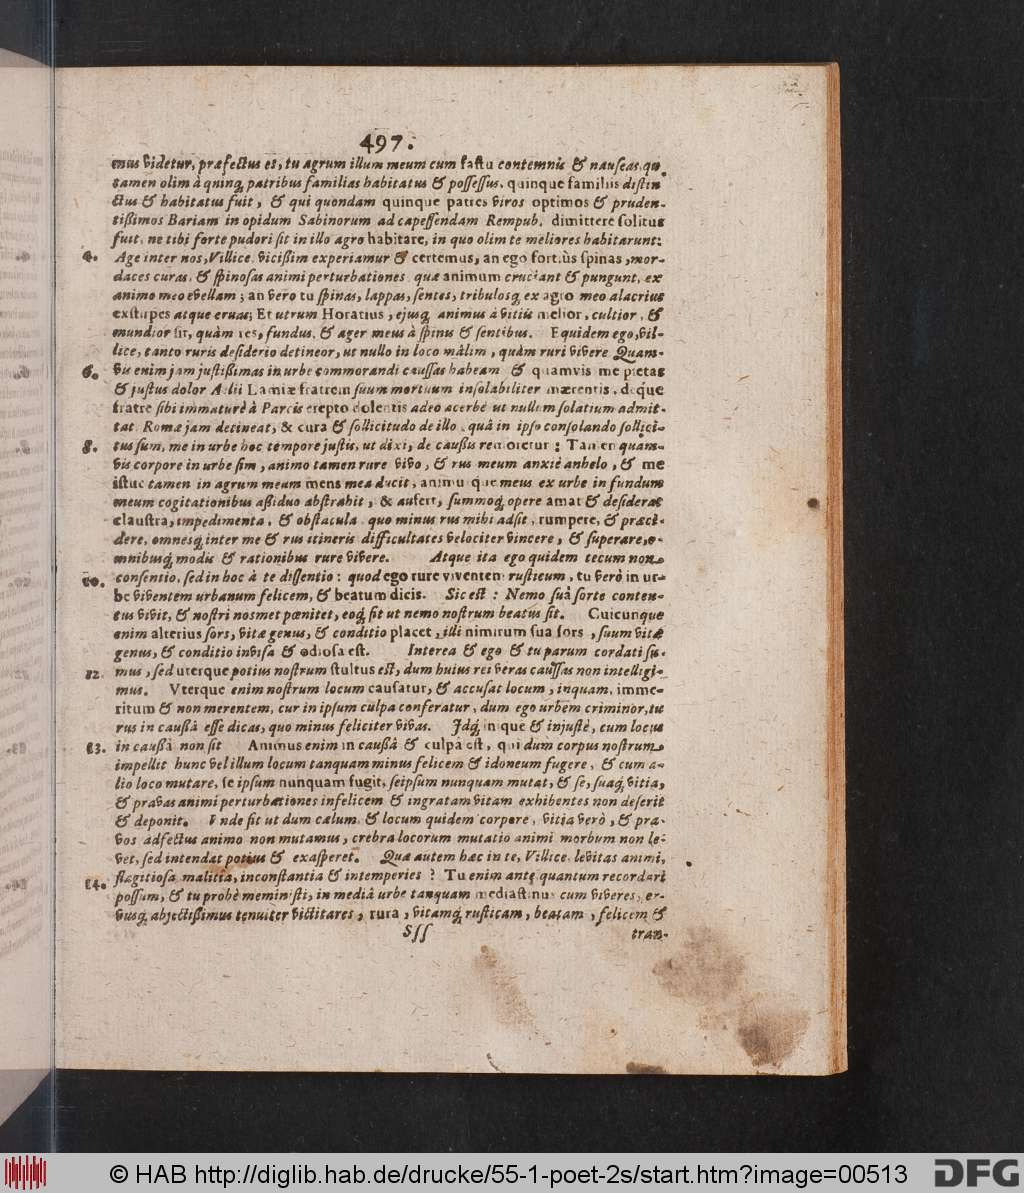 497.
enus videtur, præfectus es, tu agrum illum meum cum fastu contemnis & nauseas, qu
tamen olim à quinq; patribus familias habitatus & possessus, quinque familiis distin
ctus & habitatus fuit, & qui quondam quinque patres viros optimos & pruden-
tißimos Bariam in opidum Sabinorum ad capessendam Rempub. dimittere solitus
fuit, ne tibi forte pudori sit in illo agro habitare, in quo olim te meliores habitarunt:
4. Age inter nos, Villice, vicißim experiamur & certemus, an ego fortiùs spinas, mor-
daces curas, & spinosas animi perturbationes quæ animum cruciant & pungunt, ex
animo meo evellam; an vero tu spinas, lappas, sentes, tribulosq; ex agro meo alacrius
exstirpes atque eruas; Et utrum Horatius, ejusq; animus à vitiis melior, cultior, &
mundior sit, quàm res, fundus, & ager meus à spinis & sentibus. Equidem ego, vil-
lice, tanto ruris desiderio detineor, ut nullo in loco mâlim, quàm ruri vivere Quam-
6. vis enim jam justißimas in urbe commorandi caussas habeam & quamvis me pietas
& justus dolor Aelii Lamiæ fratrem suum mortuum insolabiliter mærentis, deque
fratre sibi immaturè à Parcis erepto dolentis adeo acerbè ut nullum solatium admit-
tat Romæ jam detineat, & cura & sollicitudo de illo, quâ in ipso consolando sollici-
8. tus sum, me in urbe hoc tempore justis, ut dixi, de caußis remoretur: Tamen quam-
vis corpore in urbe sim, animo tamen rure vivo, & rus meum anxiè anhelo, & me
istuc tamen in agrum meum mens mea ducit, animusque meus ex urbe in fundum
meum cogitationibus aßiduo abstrahit, & aufert, summoq; opere amat & desiderat
claustra, impedimenta, & obstacula, quo minus rus mihi adsit, rumpere, & præci-
dere, omnesq; inter me & rus itineris difficultates velociter vincere, & superare, o-
mnibusq; modis & rationibus rure vivere. Atque ita ego quidem tecum non
10. consentio, sed in hoc à te dissentio: quod ego rure viventem rusticum, tu verò in ur-
be viventem urbanum felicem, & beatum dicis. Sic est: Nemo suâ sorte conten-
tus vivit, & nostri nosmet pœnitet, eoq; fit ut nemo nostrum beatus sit. Cuicunque
enim alterius sors, vitæ genus, & conditio placet, illi nimirum sua sors, suum vitæ
genus, & conditio invisa & odiosa est. Interea & ego & tu parum cordati su-
12. mus, sed uterque potius nostrum stultus est, dum huius rei veras caussas non intelligi-
mus. Vterque enim nostrum locum causatur, & accusat locum, inquam, imme-
ritum & non merentem, cur in ipsum culpa conferatur, dum ego urbem criminor, tu
rus in caußâ esse dicas, quo minus feliciter vivas. Idq; inique & injustè, cum locus
13. in caußâ non sit Animus enim in caußâ & culpâ est, qui dum corpus nostrum
impellit hunc vel illum locum tanquam minus felicem & idoneum fugere, & cum a-
lio loco mutare, se ipsum nunquam fugit, seipsum nunquam mutat, & se, suaq; vitia,
& pravas animi perturbationes infelicem & ingratam vitam exhibentes non deserit
& deponit. Vnde fit ut dum cælum, & locum quidem corpore, vitia verò, & pra-
vos adfectus animo non mutamus, crebra locorum mutatio animi morbum non le-
vet, sed intendat potius & exasperet. Quæ autem hæc in te, Villice, levitas animi,
14. flagitiosa malitia, inconstantia & intemperies? Tu enim ante quantum recordari
possum, & tu probè meministi, in mediâ urbe tanquam mediastinus cum viveres, ser-
vusq; abjectißimus tenuiter victitares, rura, vitamq; rusticam, beatam, felicem &
Sſſ
tran-
© HAB http://diglib.hab.de/drucke/55-1-poet-2s/start.htm?image=00513
DFG